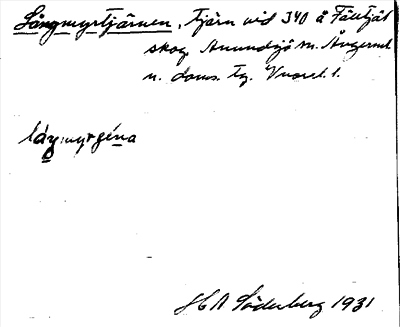 Långmyrtjärnen, tjärn vid 340 å Fälltjäl
skog Anundsjö sn. Ångerml.
n. doms. tg.
låŋmyrɕéna
H A Söderberg 1931